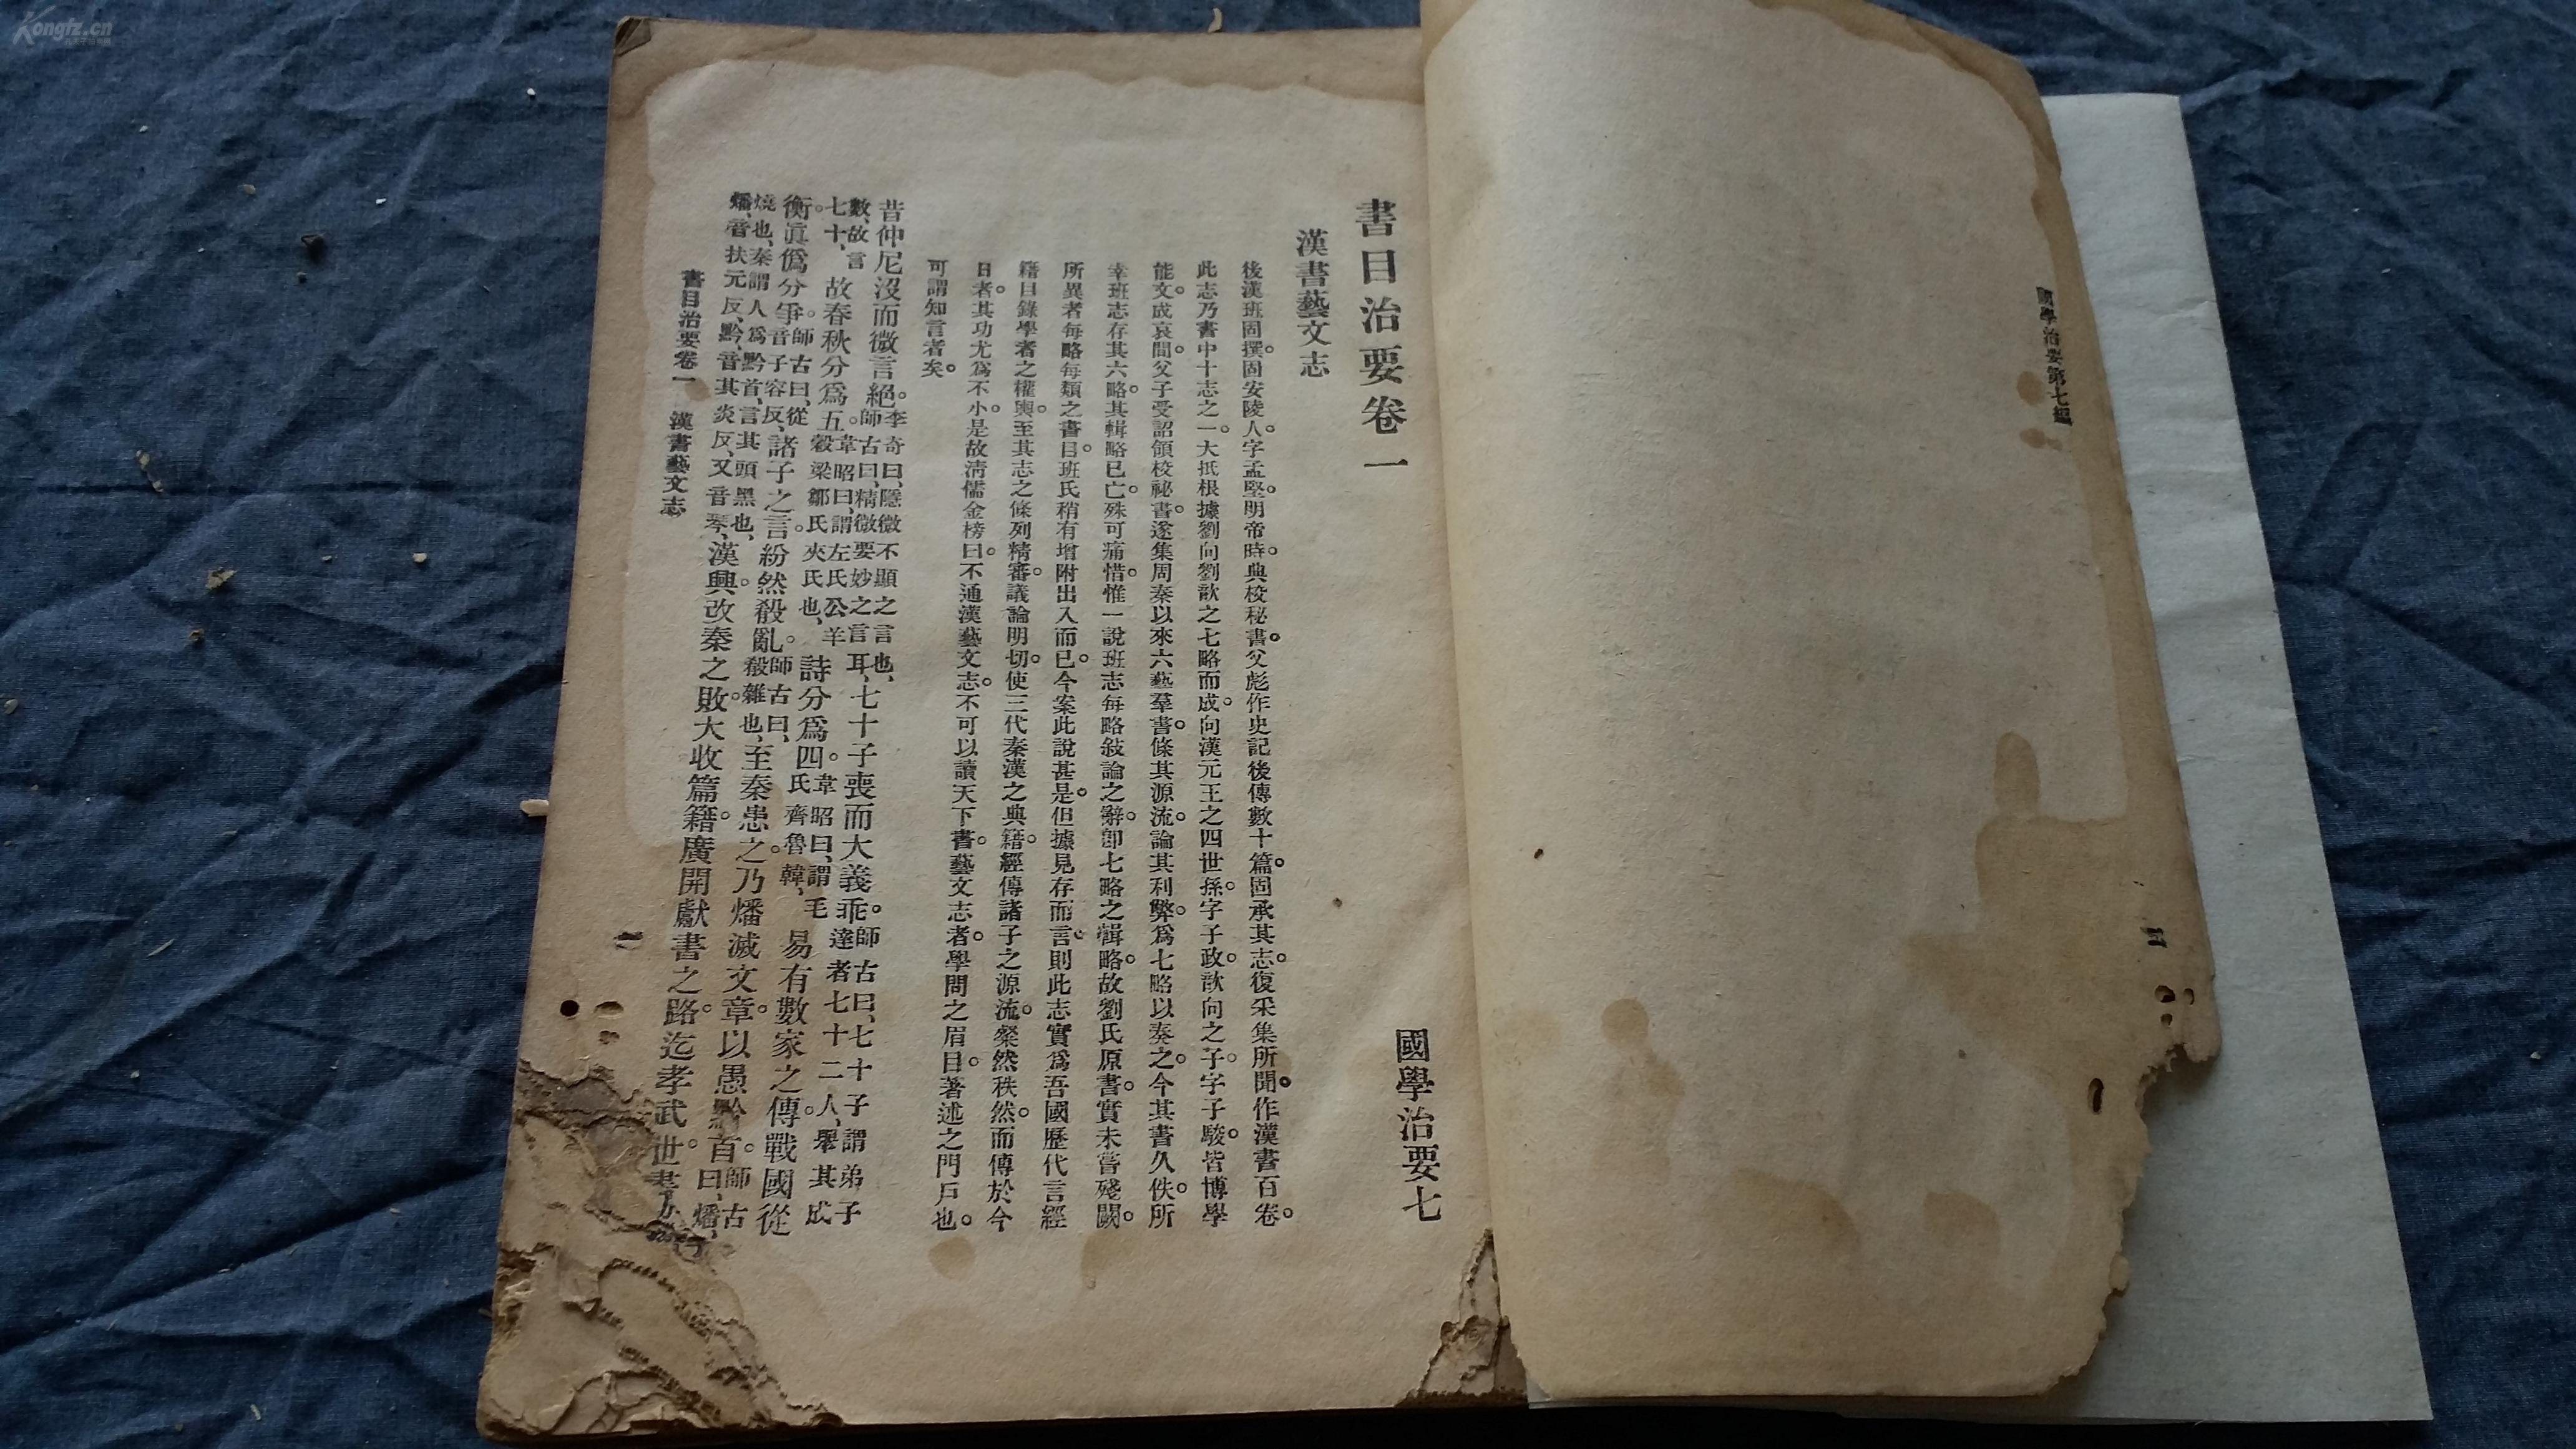 Kongfz.cn
國學治要第七編
國學治要七
書目治要卷一
漢書藝文志
後漢班固撰。固安陵人。字孟堅。明帝時。典校秘書。父彪作史記後傳數十篇。固承其志。復采集所聞。作漢書百卷。
此志乃書中十志之一。大抵根據劉向劉歆之七略而成。向漢元王之四世孫。字子政。歆向之子。字子駿。皆博學
能文。成哀間。父子受詔領校祕書。遂集周秦以來六藝羣書。條其源流。論其利弊。爲七略以奏之。今其書久佚。所
幸班志存其六略。其輯略已亡。殊可痛惜。惟一說班志每略敍論之辭。卽七略之輯略。故劉氏原書。實未嘗殘闕。
所異者每略每類之書目。班氏稍有增附出入而已。今案此說甚是。但據見存而言。則此志實爲吾國歷代言經
籍目錄學者之權輿。至其志之條列精審。議論明切。使三代秦漢之典籍。經傳諸子之源流。粲然秩然。而傳於今
日者。其功尤爲不小。是故淸儒金榜曰。不通漢藝文志。不可以讀天下書。藝文志者。學問之眉目。著述之門戶也。
可謂知言者矣。
昔仲尼沒而微言絕。李奇曰、隱微不顯之言也、師古曰、精微要妙之言耳、七十子喪而大義乖。師古曰、七十子謂弟子達者七十二人、舉其成
數、故言七十、故春秋分爲五。韋昭曰、謂左氏公羊穀梁鄒氏夾氏也、詩分爲四。韋昭曰、謂毛氏齊魯韓、易有數家之傳。戰國從
衡。眞僞分爭。師古曰、從音子容反、諸子之言。紛然殽亂。師古曰、殽雜也、至秦患之。乃燔滅文章。以愚黔首。師古曰、燔、
燒也、秦謂人爲黔首、言其頭黑也、燔、音扶元反、黔、音其炎反、又音琴、漢興。改秦之敗。大收篇籍。廣開獻書之路。迄孝武世。書
書目治要卷一 漢書藝文志 一